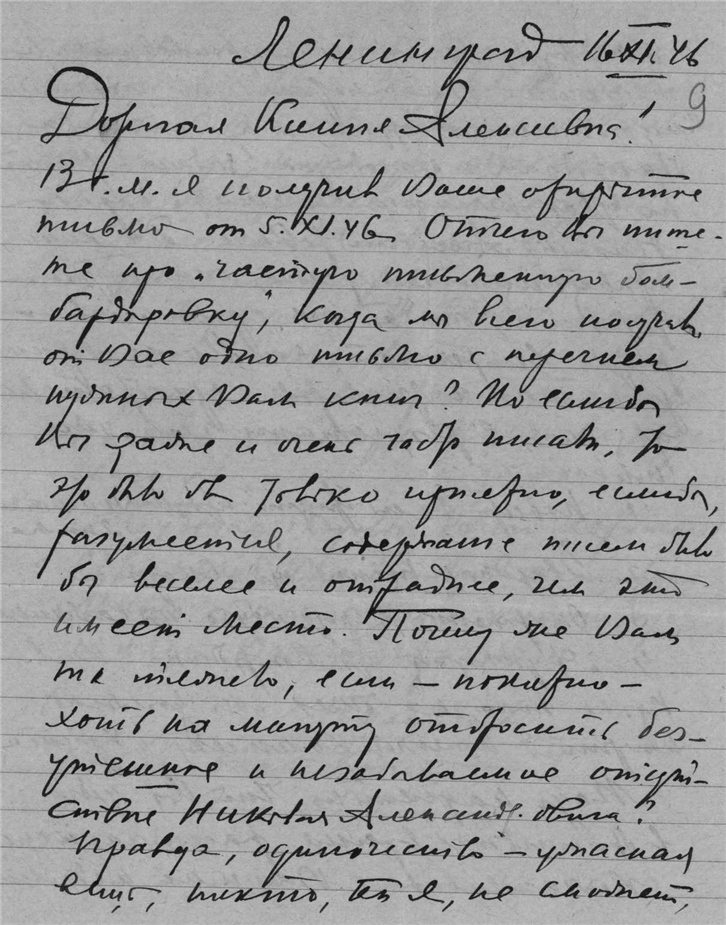 Ленинград 16 XI. 46
9
Дорогая Ксения Алексеевна!
13 с.м. я получил Ваше открытое
письмо от 5. XI. 46. Отчего Вы пише-
те про „частую письменную бом-
бардировку", когда мы всего получили
от Вас одно письмо с перечнем
нужных Вам книг? Но если бы
Вы даже и очень часто писали, то
это было бы только приятно, если бы,
разумеется, содержание писем было
бы веселее и отраднее, чем это
имеет место. Почему же Вам
так тяжело, если – –
хоть на минуту отбросить без-
утешное и незабываемое отсут-
ствие Николая Александровича?
Правда, одиночество – ужасная
вещь, никто, как я, не сможет,